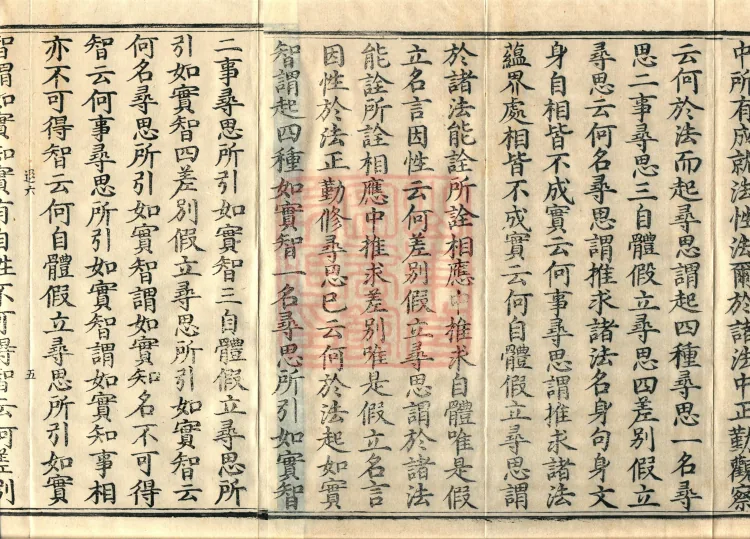 中所有成就法性法爾於諸法中正勤觀察
云何於法而起尋思謂起四種尋思一名尋
思二事尋思三自體假立尋思四差別假立
尋思云何名尋思謂推求諸法名身句身文
身自相皆不成實云何事尋思謂推求諸法
蘊界處相皆不成實云何自體假立尋思謂
於諸法能詮所詮相應中推求自體唯是假
立名言因性云何差別假立尋思謂於諸法
能詮所詮相應中推求差別唯是假立名言
因性於法正勤修尋思已云何於法起如實
智謂起四種如實智一名尋思所引如實智
二事尋思所引如實智三自體假立尋思所
引如實智四差別假立尋思所引如實智云
何名尋思所引如實智謂如實知名不可得
智云何事尋思所引如實智謂如實知事相
亦不可得智云何自體假立尋思所引如實
五
智謂如實知實有自性不可得智云何差別